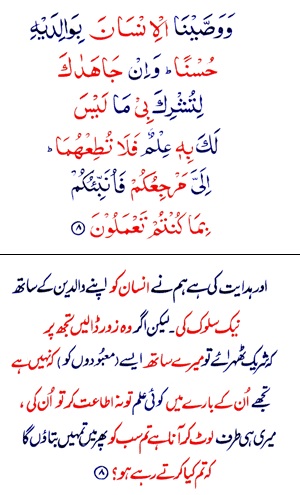 وَوَصَّيْنَا الْاِنْسَانَ بِوَالِدَيْهِ
حُسْنًا ؕ وَاِنْ جَاهَدٰكَ
لِتُشْرِكَ بِىْ مَا لَيْسَ
لَكَ بِهٖ عِلْمٌ فَلَا تُطِعْهُمَا ؕ
اِلَىَّ مَرْجِعُكُمْ فَاُنَبِّئُكُمْ
بِمَا كُنْتُمْ تَعْمَلُوْنَ ﴿۸﴾
اور ہدایت کی ہے ہم نے انسان کو اپنے والدین کے ساتھ
نیک سلوک کی۔ لیکن اگر وہ زور ڈالیں تجھ پر
کہ شریک ٹھہرائے تو میرے ساتھ ایسے (معبودوں کو) کہ نہیں ہے
تجھے اُن کے بارے میں کوئی علم تو نہ اطاعت کر تو اُن کی ،
میری ہی طرف لوٹ کر آنا ہے تم سب کو پھر میں تمہیں بتاؤں گا
کہ تم کیا کرتے رہے ہو؟ ﴿۸﴾